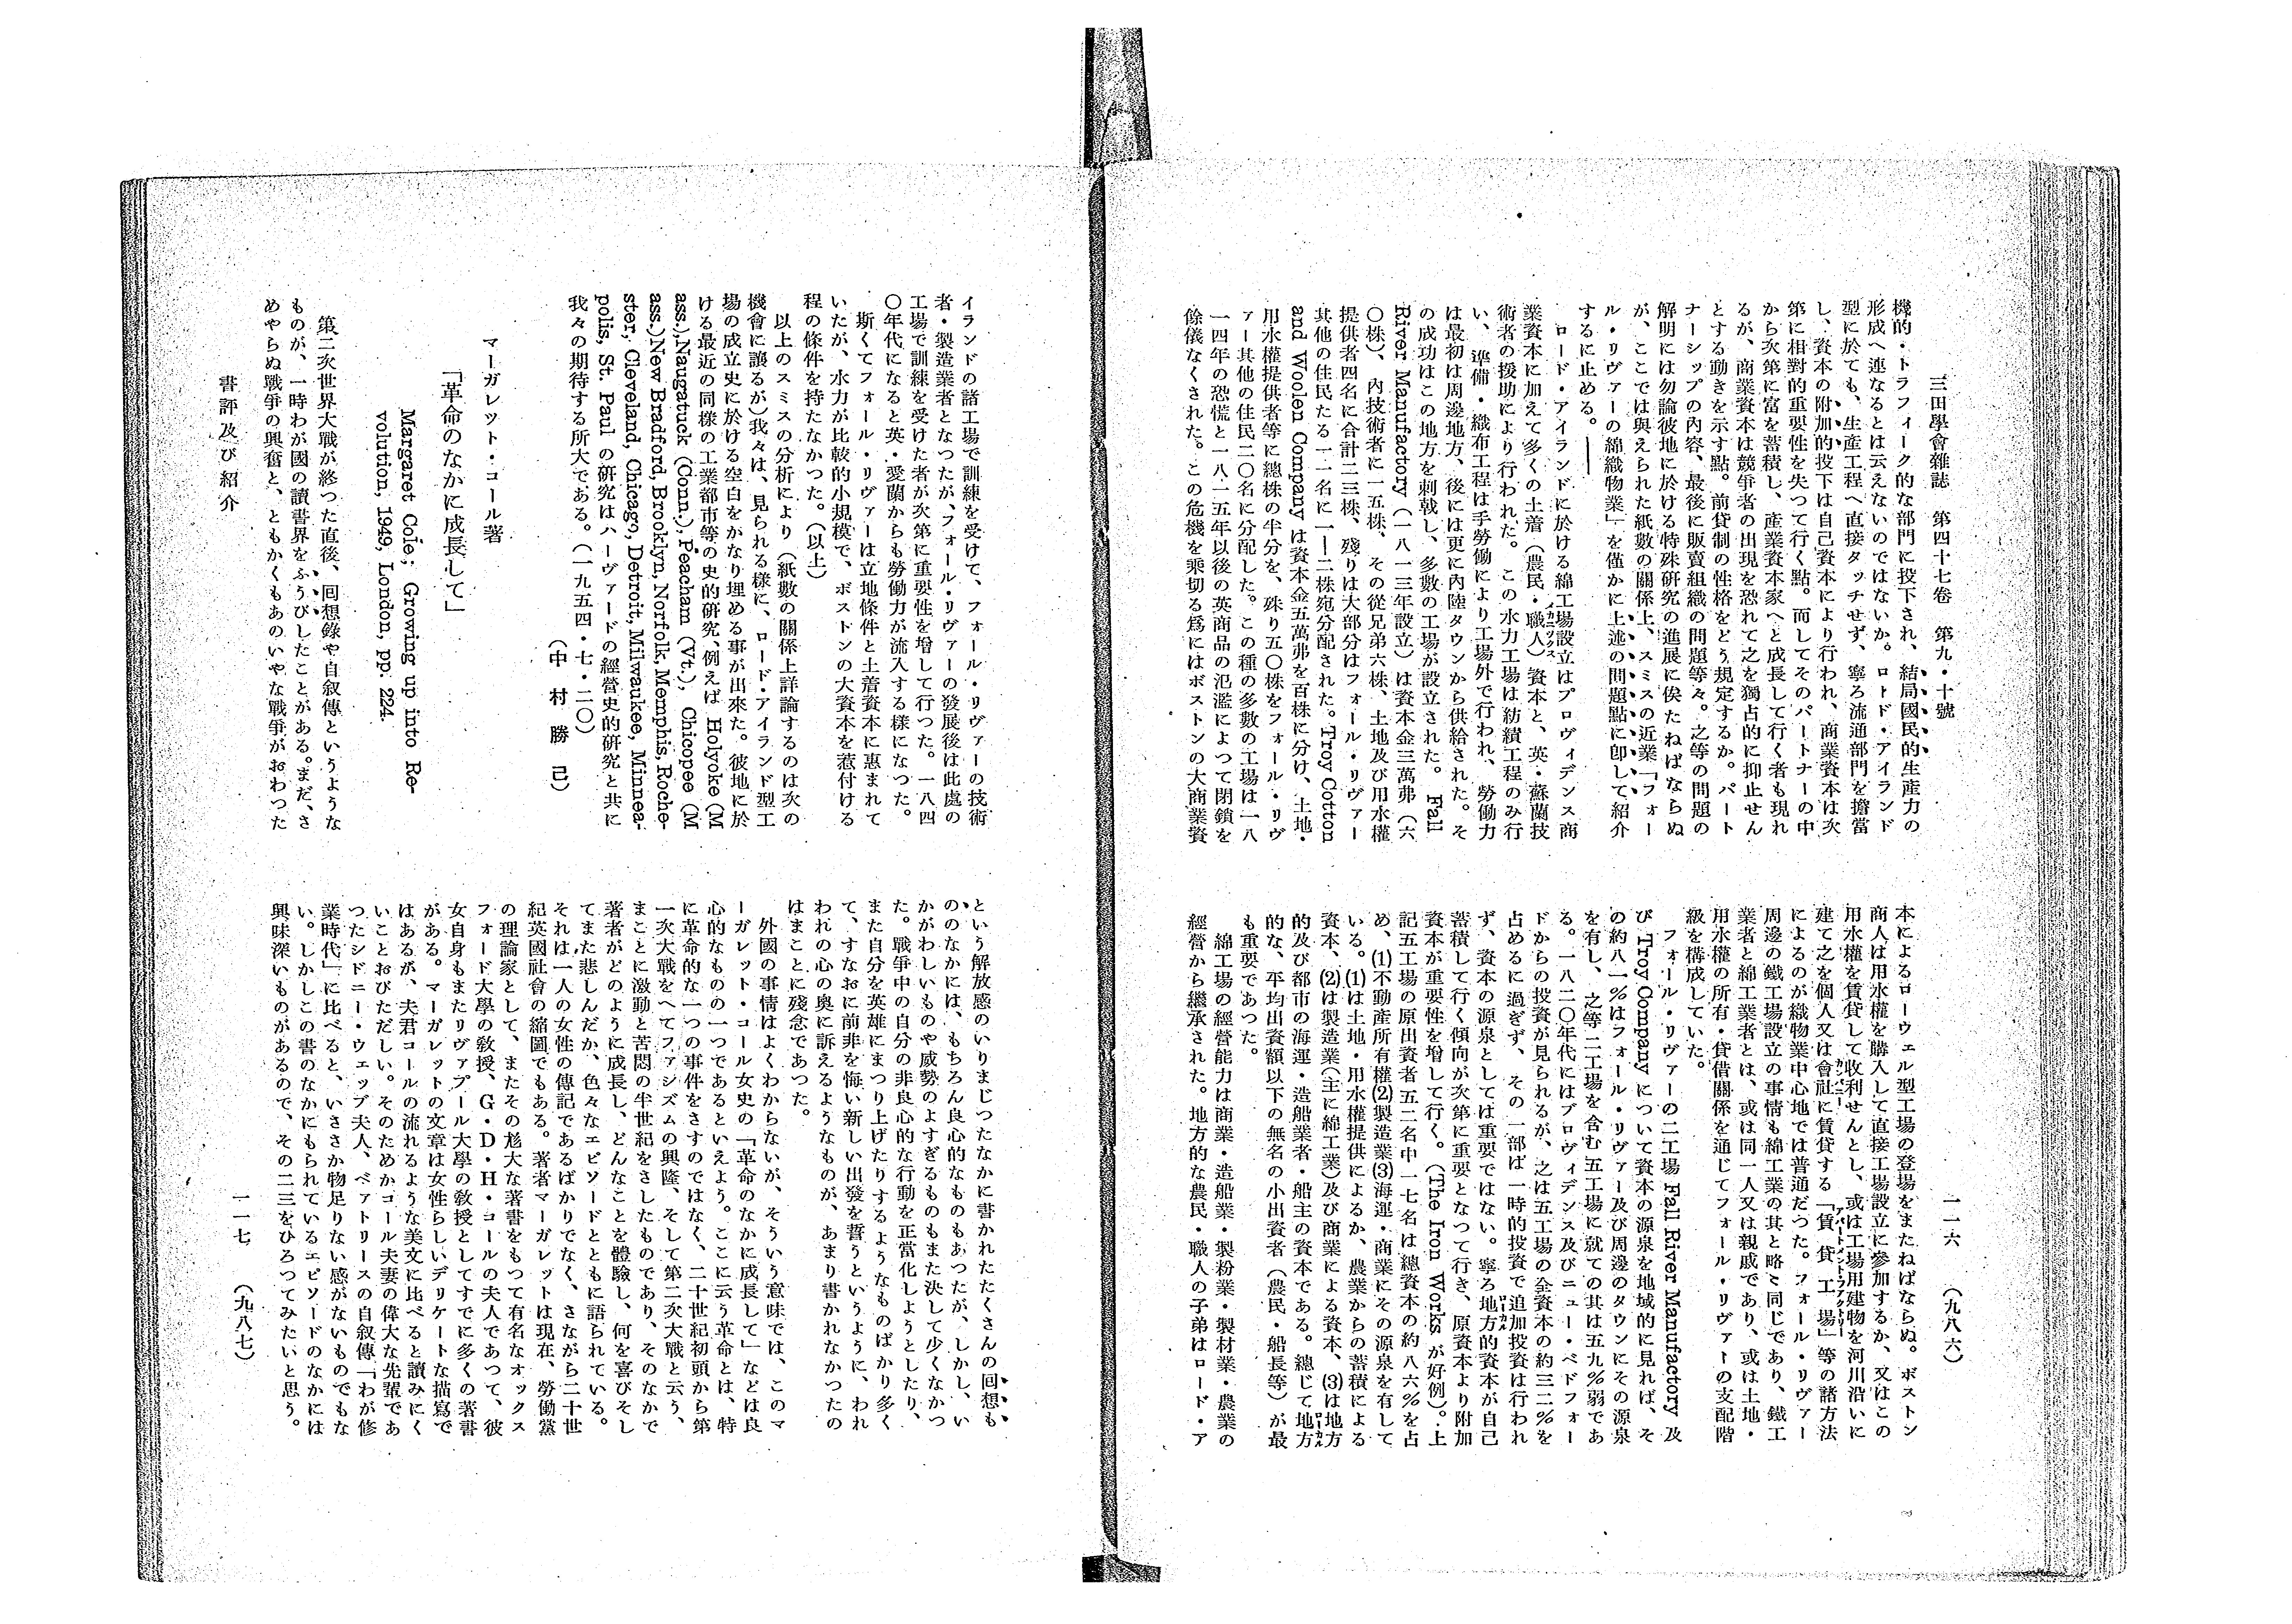 三田學會雜誌　第四十七卷　第九・十號
一一六　（九八六）
機的・トラフィーク的な部門に投下され、結局國民的生産力の
形成へ連なるとは云えないのではないか。ロード・アイランド
型に於ても、生産工程へ直接タッチせず、寧ろ流通部門を擔當
し、資本の附加的投下は自己資本により行われ、商業資本は次
第に相對的重要性を失つて行く點。而してそのパートナーの中
から次第に富を蓄積し、産業資本家へと成長して行く者も現れ
るが、商業資本は競爭者の出現を恐れて之を獨占的に抑止せん
とする動きを示す點。前貸制の性格をどう規定するか。パート
ナーシップの內容、最後に販賣組織の問題等々。之等の問題の
解明には勿論彼地に於ける特殊研究の進展に俟たねばならぬ
が、ここでは與えられた紙數の關係上、スミスの近業「フォー
ル・リヴァーの綿織物業」を僅かに上述の問題點に卽して紹介
するに止める。――
ロード・アイランドに於ける綿工場設立はプロヴィデンス商
業資本に加えて多くの土着（農民・職人）資本と、英・蘇蘭技
術者の援助により行われた。この水力工場は紡績工程のみ行
い、準備・織布工程は手勞働により工場外で行われ、勞働力
は最初は周邊地方、後には更に內陸タウンから供給された。そ
の成功はこの地方を刺戟し、多數の工場が設立された。Fall
River Manufactory（一八一三年設立）は資本金三萬弗（六
〇株）、內技術者に一五株、その從兄弟六株、土地及び用水權
提供者四名に合計二三株、殘りは大部分はフォール・リヴァー
其他の住民たる一一名に一―二株宛分配された。Troy Cotton
and Woolen Company は資本金五萬弗を百株に分け、土地・
用水權提供者等に總株の半分を、殊り五〇株をフォール・リヴ
ァー其他の住民二〇名に分配した。この種の多數の工場は一八
一四年の恐慌と一八一五年以後の英商品の氾濫によつて閉鎖を
餘儀なくされた。この危機を乘切る爲にはボストンの大商業資
本によるローウェル型工場の登場をまたねばならぬ。ボストン
商人は用水權を購入して直接工場設立に參加するか、又はこの
用水權を賃貸して收利せんとし、或は工場用建物を河川沿いに
建て之を個人又は會社に賃貸する「賃貸工場」等の諸方法
によるのが織物業中心地では普通だつた。フォール・リヴァー
周邊の鐵工場設立の事情も綿工業の其と略〻同じであり、鐵工
業者と綿工業者とは、或は同一人又は親戚であり、或は土地・
用水權の所有・貸借關係を通じてフォール・リヴァーの支配階
級を構成していた。
フォール・リヴァーの二工場 Fall River Manufactory 及
び Troy Company について資本の源泉を地域的に見れば、そ
の約八一％はフォール・リヴァー及び周邊のタウンにその源泉
を有し、之等二工場を含む五工場に就ての其は五九％弱であ
る。一八二〇年代にはプロヴィデンス及びニュー・ベドフォー
ドからの投資が見られるが、之は五工場の全資本の約三二％を
占めるに過ぎず、その一部は一時的投資で追加投資は行われ
ず、資本の源泉としては重要ではない。寧ろ地方的資本が自己
蓄積して行く傾向が次第に重要となつて行き、原資本より附加
資本が重要性を增して行く。（The Iron Works が好例）。上
記五工場の原出資者五二名中一七名は總資本の約八六％を占
め、(1)不動產所有權(2)製造業(3)海運・商業にその源泉を有して
いる。(1)は土地・用水權提供によるか、農業からの蓄積による
資本、(2)は製造業（主に綿工業）及び商業による資本、(3)は地方
的及び都市の海運・造船業者・船主の資本である。總じて地方
的な、平均出資額以下の無名の小出資者（農民・船長等）が最
も重要であつた。
綿工場の經營能力は商業・造船業・製粉業・製材業・農業の
經營から繼承された。地方的な農民・職人の子弟はロード・ア
イランドの諸工場で訓練を受けて、フォール・リヴァーの技術
者・製造業者となつたが、フォール・リヴァーの發展後は此處の
工場で訓練を受けた者が次第に重要性を增して行つた。一八四
〇年代になると英・愛蘭からも勞働力が流入する樣になつた。
斯くてフォール・リヴァーは立地條件と土着資本に惠まれて
いたが、水力が比較的小規模で、ボストンの大資本を惹付ける
程の條件を持たなかつた。（以上）
以上のスミスの分析により（紙數の關係上詳論するのは次の
機會に讓るが）我々は、見られる樣に、ロード・アイランド型工
場の成立史に於ける空白をかなり埋める事が出來た。彼地に於
ける最近の同樣の工業都市等の史的硏究、例えば Holyoke (M
ass.),Naugatuck (Conn.), Peacham (Vt.), Chicopee (M
ass.)New Bradford, Brooklyn, Norfolk, Memphis, Roche-
ster, Cleveland, Chicago, Detroit, Milwaukee, Minnea-
polis, St. Paul の硏究はハーヴァードの經營史的硏究と共に
我々の期待する所大である。（一九五四・七・二〇）
（中　村　勝　己）
マーガレット・コール著
「革命のなかに成長して」
Margaret Cole; Growing up into Re-
volution, 1949, London, pp. 224.
第二次世界大戰が終つた直後、回想錄や自叙傳というような
ものが、一時わが國の讀書界をふうびしたことがある。まだ、さ
めやらぬ戰爭の興奮と、ともかくもあのいやな戰爭がおわつた
という解放感のいりまじつたなかに書かれたたくさんの回想も
ののなかには、もちろん良心的なものもあつたが、しかし、い
かがわしいものや威勢のよすぎるものもまた決して少くなかつ
た。戰爭中の自分の非良心的な行動を正當化しようとしたり、
また自分を英雄にまつり上げたりするようなものばかり多く
て、すなおに前非を悔い新しい出發を誓うというように、われ
われの心の奧に訴えるようなものが、あまり書かれなかつたの
はまことに殘念であつた。
外國の事情はよくわからないが、そういう意味では、このマ
ーガレット・コール女史の「革命のなかに成長して」などは良
心的なものの一つであるといえよう。ここに云う革命とは、特
に革命的な一つの事件をさすのではなく、二十世紀初頭から第
一次大戰をへてファシズムの興隆、そして第二次大戰と云う、
まことに激動と苦悶の半世紀をさしたものであり、そのなかで
著者がどのように成長し、どんなことを體驗し、何を喜びそし
てまた悲しんだか、色々なエピソードとともに語られている。
それは一人の女性の傳記であるばかりでなく、さながら二十世
紀英國社會の縮圖でもある。著者マーガレットは現在、勞働黨
の理論家として、またその尨大な著書をもつて有名なオックス
フォード大學の敎授、G・D・H・コールの夫人であつて、彼
女自身もまたリヴァプール大學の敎授としてすでに多くの著書
がある。マーガレットの文章は女性らしいデリケートな描寫で
はあるが、夫君コールの流れるような美文に比べると讀みにく
いことおびただしい。そのためかコール夫妻の偉大な先輩であ
つたシドニー・ウェッブ夫人、ベァトリースの自叙傳「わが修
業時代」に比べると、いささか物足りない感がないものでもな
い。しかしこの書のなかにもられているエピソードのなかには
興味深いものがあるので、その二三をひろつてみたいと思う。
書評及び紹介
一一七　（九八七）